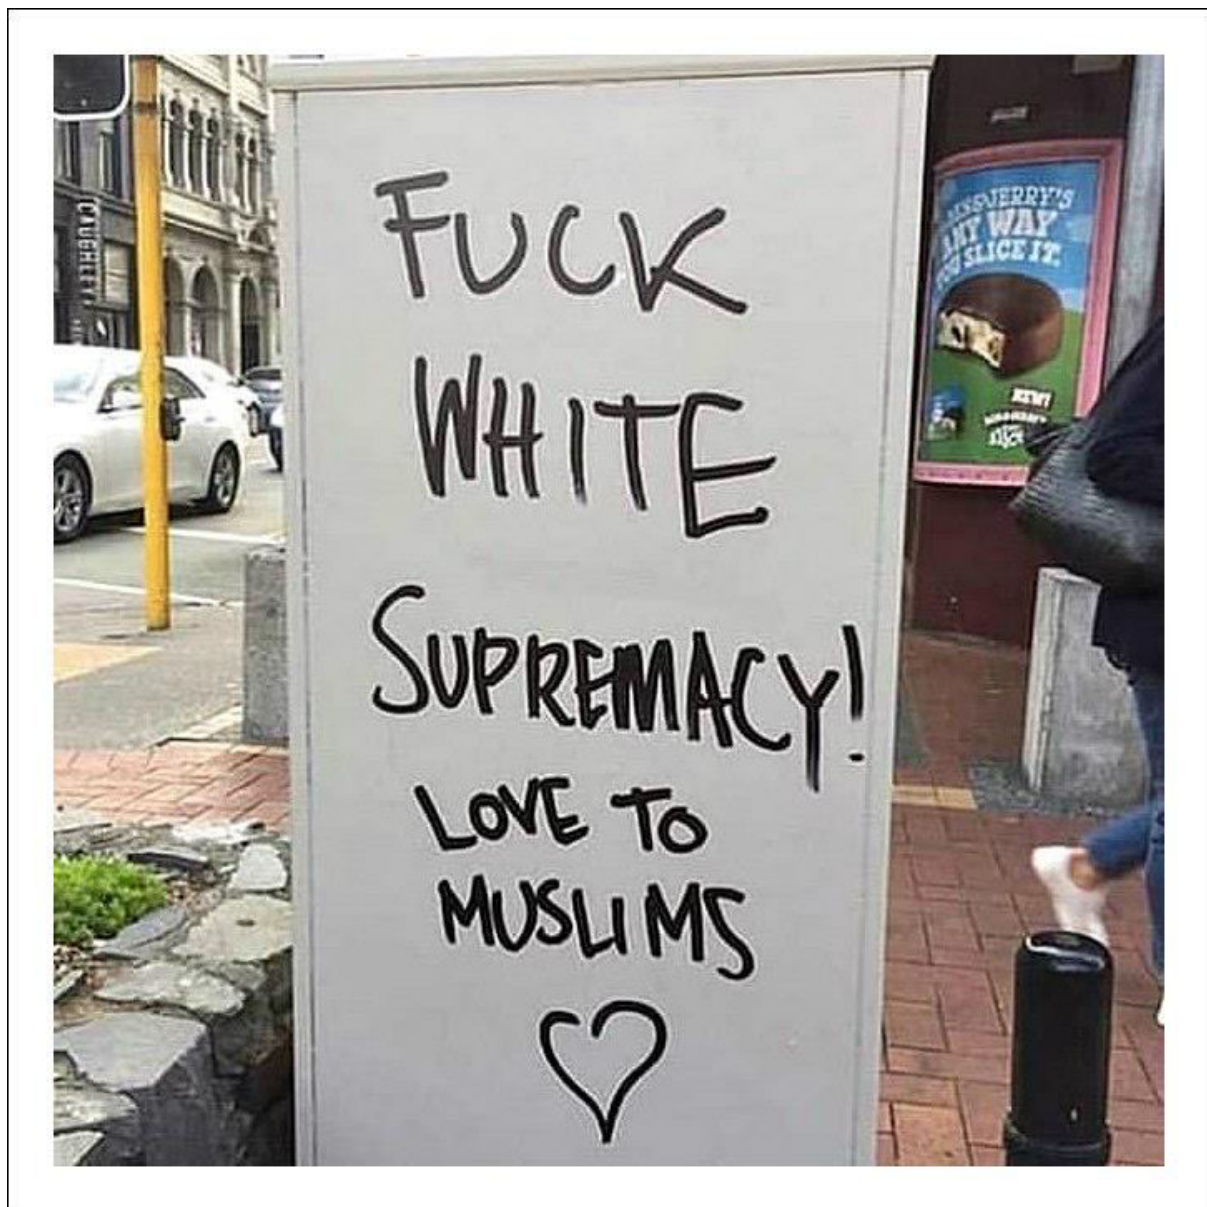 FUCK
WHITE
SUPREMACY!
LOVE TO
MUSLIMS
CAUGHLEY
JERRY'S
ANY WAY
YOU SLICE IT.
NEW!